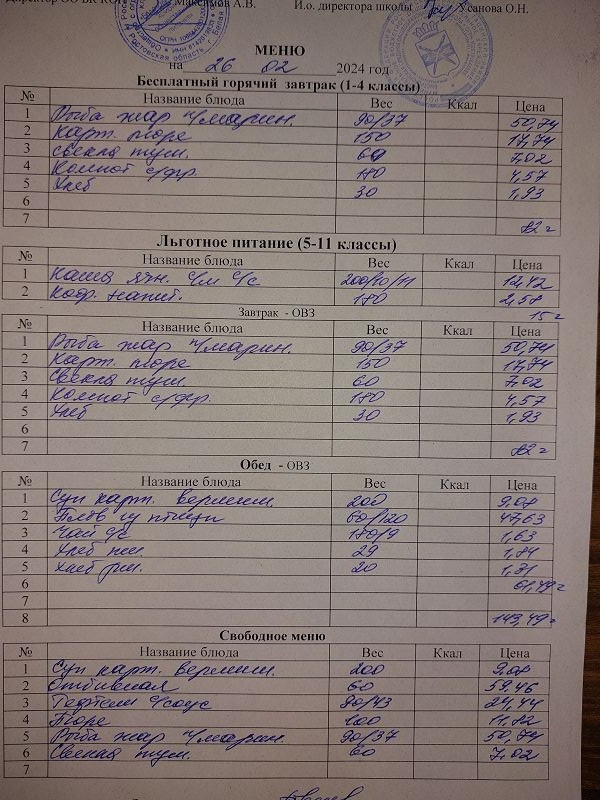 Директор ОО ВК КОН Максимов А.В. И.о. директора школы Хсанова О.Н.
МЕНЮ
на 26 02 2024 год
Бесплатный горячий завтрак (1-4 классы)
№ Название блюда Вес Ккал Цена
1 Рыба жар ч/марин. 90/37 50,74
2 карт. пюре 150 17,74
3 свекла туш. 60 7,02
4 Компот с/фр. 180 4,57
5 Хлеб 30 1,93
6
7 82=
Льготное питание (5-11 классы)
№ Название блюда Вес Ккал Цена
1 Каша ячн. с/м с/с 200/10/11 12,42
2 Коф. напит. 180 2,58
15=
Завтрак - ОВЗ
№ Название блюда Вес Ккал Цена
1 Рыба жар ч/марин. 90/37 50,74
2 Карт. пюре 150 17,74
3 Свекла туш. 60 7,02
4 Компот с/фр. 180 4,57
5 Хлеб 30 1,93
6
7 82=
Обед - ОВЗ
№ Название блюда Вес Ккал Цена
1 Суп карт. вермиш. 200 9,08
2 Плов из птицы 60/120 47,63
3 Чай 180/9 1,63
4 Хлеб пш. 29 1,84
5 хлеб рж. 20 1,31
6 61,49=
7
8 143,49=
Свободное меню
№ Название блюда Вес Ккал Цена
1 Суп карт. вермиш. 200 9,08
2 Отбивная 60 59,46
3 Тефтели с/соус 90/43 24,44
4 Пюре 100 11,82
5 Рыба жар ч/марин. 90/37 50,74
6 Свекла туш. 60 7,02
7